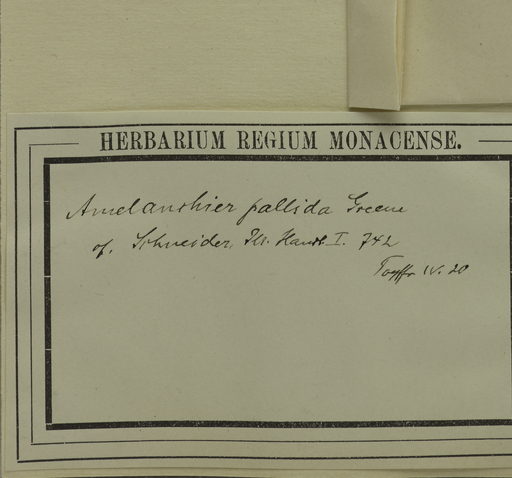 HERBARIUM REGIUM MONACENSE.
Amelanchier pallida Greene
cf. Schneider, Ill. Handb. I. 742
Toepffer IV. 20